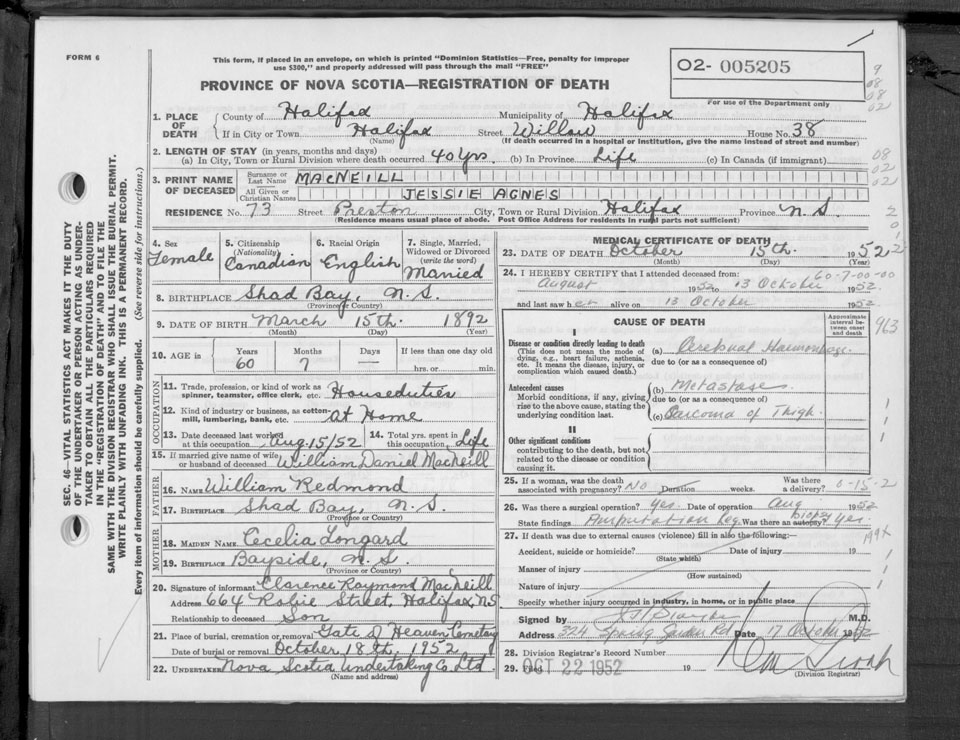 FORM 6
This form, if placed in an envelope, on which is printed "Dominion Statistics—Free, penalty for improper
use $300," and property addressed will pass through the mail "FREE"
PROVINCE OF NOVA SCOTIA—REGISTRATION OF DEATH
02- 005205
For use of the Department only
9
08
08
02
08
02
02
SEC. 46—VITAL STATISTICS ACT MAKES IT THE DUTY
OF THE UNDERTAKER OR PERSON ACTING AS UNDER-
TAKER TO OBTAIN ALL THE PARTICULARS REQUIRED
IN THE "REGISTRATION OF DEATH" AND TO FILE THE
SAME WITH THE DIVISION REGISTRAR WHO SHALL ISSUE THE BURIAL PERMIT.
WRITE PLAINLY WITH UNFADING INK. THIS IS A PERMANENT RECORD.
Every item of information should be carefully supplied. (See reverse side for instructions.)
1. PLACE OF DEATH County of Halifax Municipality of Halifax
If in City or Town Halifax Street Willow House No. 38
(Name) (If death occurred in a hospital or institution, give the name instead of street and number)
2. LENGTH OF STAY (in years, months and days)
(a) In City, Town or Rural Division where death occurred 40 yrs. (b) In Province Life (c) In Canada (if immigrant)
3. PRINT NAME OF DECEASED Surname or Last Name MACNEILL
All Given or Christian Names JESSIE AGNES
RESIDENCE No. 73 Street Preston City, Town or Rural Division Halifax Province N.S.
(Residence means usual place of abode. Post Office Address for residents in rural parts not sufficient)
4. Sex Female
5. Citizenship (Nationality) Canadian
6. Racial Origin English
7. Single, Married, Widowed or Divorced (write the word) Married
8. BIRTHPLACE Shad Bay, N.S.
(Province or Country)
9. DATE OF BIRTH March 15th 1892
(Month) (Day) (Year)
10. AGE in Years 60 Months 7 Days — If less than one day old hrs. or min.
OCCUPATION
11. Trade, profession, or kind of work as spinner, teamster, office clerk, etc. Houseduties
12. Kind of industry or business, as cotton-mill, lumbering, bank, etc. at Home
13. Date deceased last worked at this occupation Aug. 15/52 14. Total yrs. spent in this occupation Life
15. If married give name of wife or husband of deceased William Daniel MacNeill
FATHER
16. NAME William Redmond
17. BIRTHPLACE Shad Bay, N.S.
(Province or Country)
MOTHER
18. MAIDEN NAME Cecelia Longard
19. BIRTHPLACE Bayside, N.S.
(Province or Country)
20. Signature of informant Clarence Raymond MacNeill
Address 664 Robie Street, Halifax, N.S.
Relationship to deceased Son
21. Place of burial, cremation or removal Gate of Heaven Cemetary
Date of burial or removal October 18th, 1952
22. UNDERTAKER Nova Scotia Undertaking Co. Ltd.
(Name and address)
MEDICAL CERTIFICATE OF DEATH
23. DATE OF DEATH October 15th. 1952
(Month) (Day) (Year)
60-7-00-00
24. I HEREBY CERTIFY that I attended deceased from:
August 1952 to 13 October 1952
and last saw her alive on 13 October 1952
CAUSE OF DEATH
Approximate interval between onset and death
963
I
Disease or condition directly leading to death (a) Cerebral Haemorrhage.
(This does not mean the mode of dying, e.g., heart failure, asthenia, etc. It means the disease, injury, or complication which caused death.)
due to (or as a consequence of)
Antecedent causes (b) Metastases.
Morbid conditions, if any, giving rise to the above cause, stating the underlying condition last.
due to (or as a consequence of)
(c) Sarcoma of Thigh.
II
Other significant conditions contributing to the death, but not related to the disease or condition causing it.
25. If a woman, was the death associated with pregnancy? NO Duration weeks. Was there a delivery? 0-15-2
26. Was there a surgical operation? Yes. Date of operation Aug 1952
State findings Amputation Leg. Was there an autopsy? biopsy Yes.
27. If death was due to external causes (violence) fill in also the following:— 199X
Accident, suicide or homicide? Date of injury 19
(State which)
Manner of injury
(How sustained)
Nature of injury
Specify whether injury occurred in industry, in home, or in public place
Signed by M.D.
Address 324 Spring Garden Rd Date 17 October 1952
28. Division Registrar's Record Number
29. Filed OCT 22 1952 19
(Division Registrar)